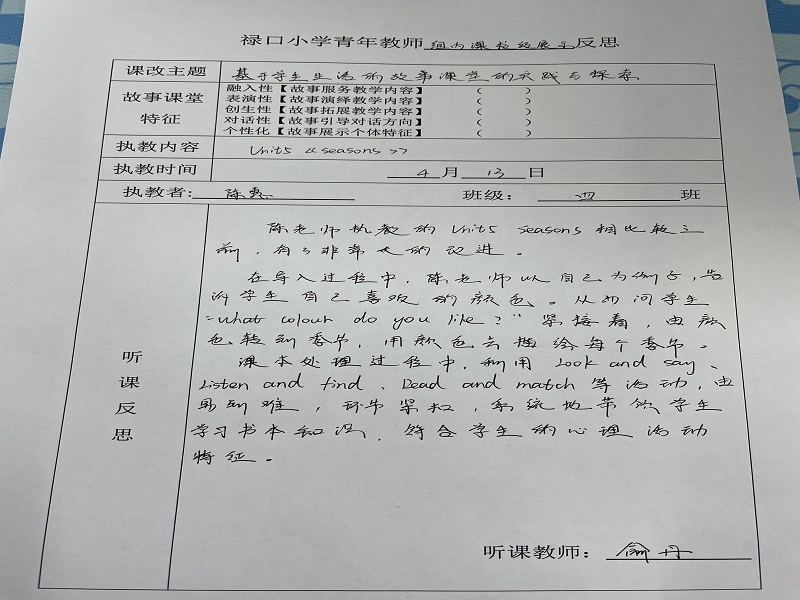 禄口小学青年教师组内课柱级展示反思
课改主题 基于学生生活的故事课堂的实践与探索
故事课堂特征
融入性【故事服务教学内容】（ ）
表演性【故事演绎教学内容】（ ）
创生性【故事拓展教学内容】（ ）
对话性【故事引导对话方向】（ ）
个性化【故事展示个体特征】（ ）
执教内容 Unit5 《seasons》
执教时间 4月13日
执教者：陈 班级：四班
听课反思
陈老师执教的 Unit5 seasons 相比较之
前，有了非常大的改进。
在导入过程中，陈老师以自己为例子，告
诉学生自己喜欢的颜色。从而问学生
"what colour do you like？"紧接着，由颜
色转到季节，用颜色去描绘每个季节。
课本处理过程中，利用 Look and say、
Listen and find、Read and match 等活动，由
易到难，环节紧扣，系统地带领学生
学习书本知识，符合学生的心理活动
特征。
听课教师：俞丹